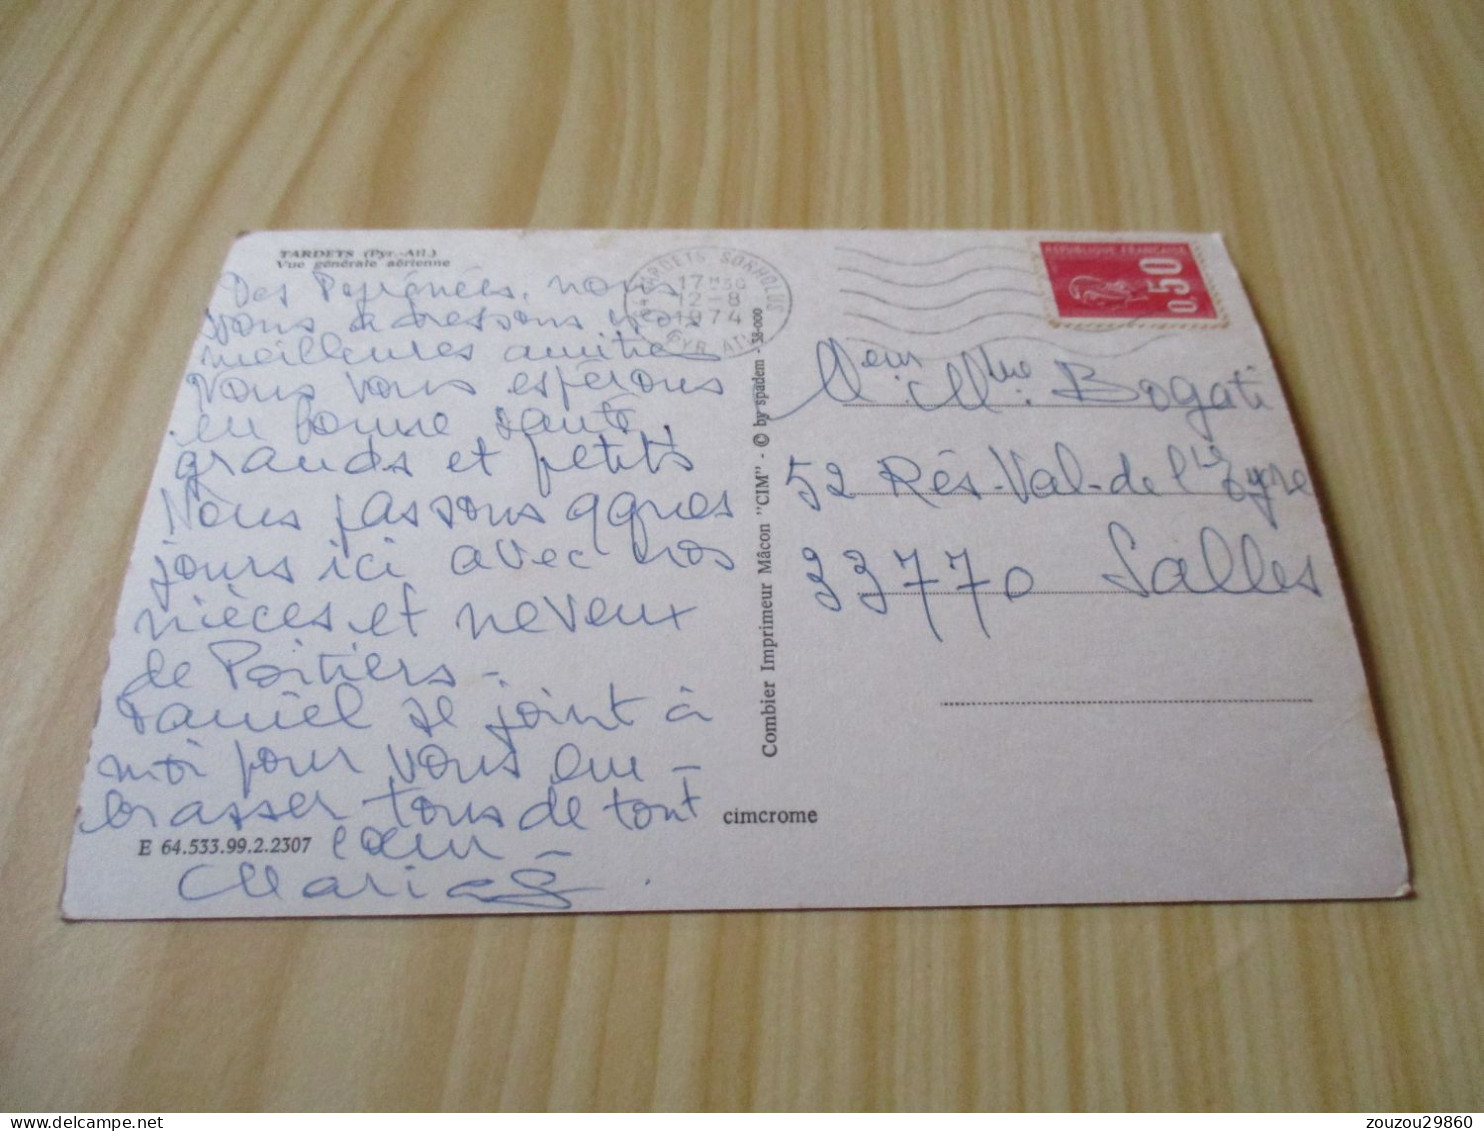 TARDETS (Pyr.-Atl.)
Vue générale aérienne
Des Pyrénées, nous
vous adressons nos
meilleures amitiés
Nous vous espérons
en bonne santé,
grands et petits
Nous passons qques
jours ici avec nos
nièces et neveux
de Poitiers -
Daniel se joint à
moi pour vous em-
brasser tous de tout
cœur -
E 64.533.99.2.2307
TARDETS SORHOLUS
17H30
12-8
1974
PYR. ATL.
Combier Imprimeur Mâcon "CIM" - © by spadem - 38-000
cimcrome
REPUBLIQUE FRANCAISE
0,50
Meur. Mme. Bogati
52 Rés-Val-de l'Eyre
33770 Salles
zouzou29860